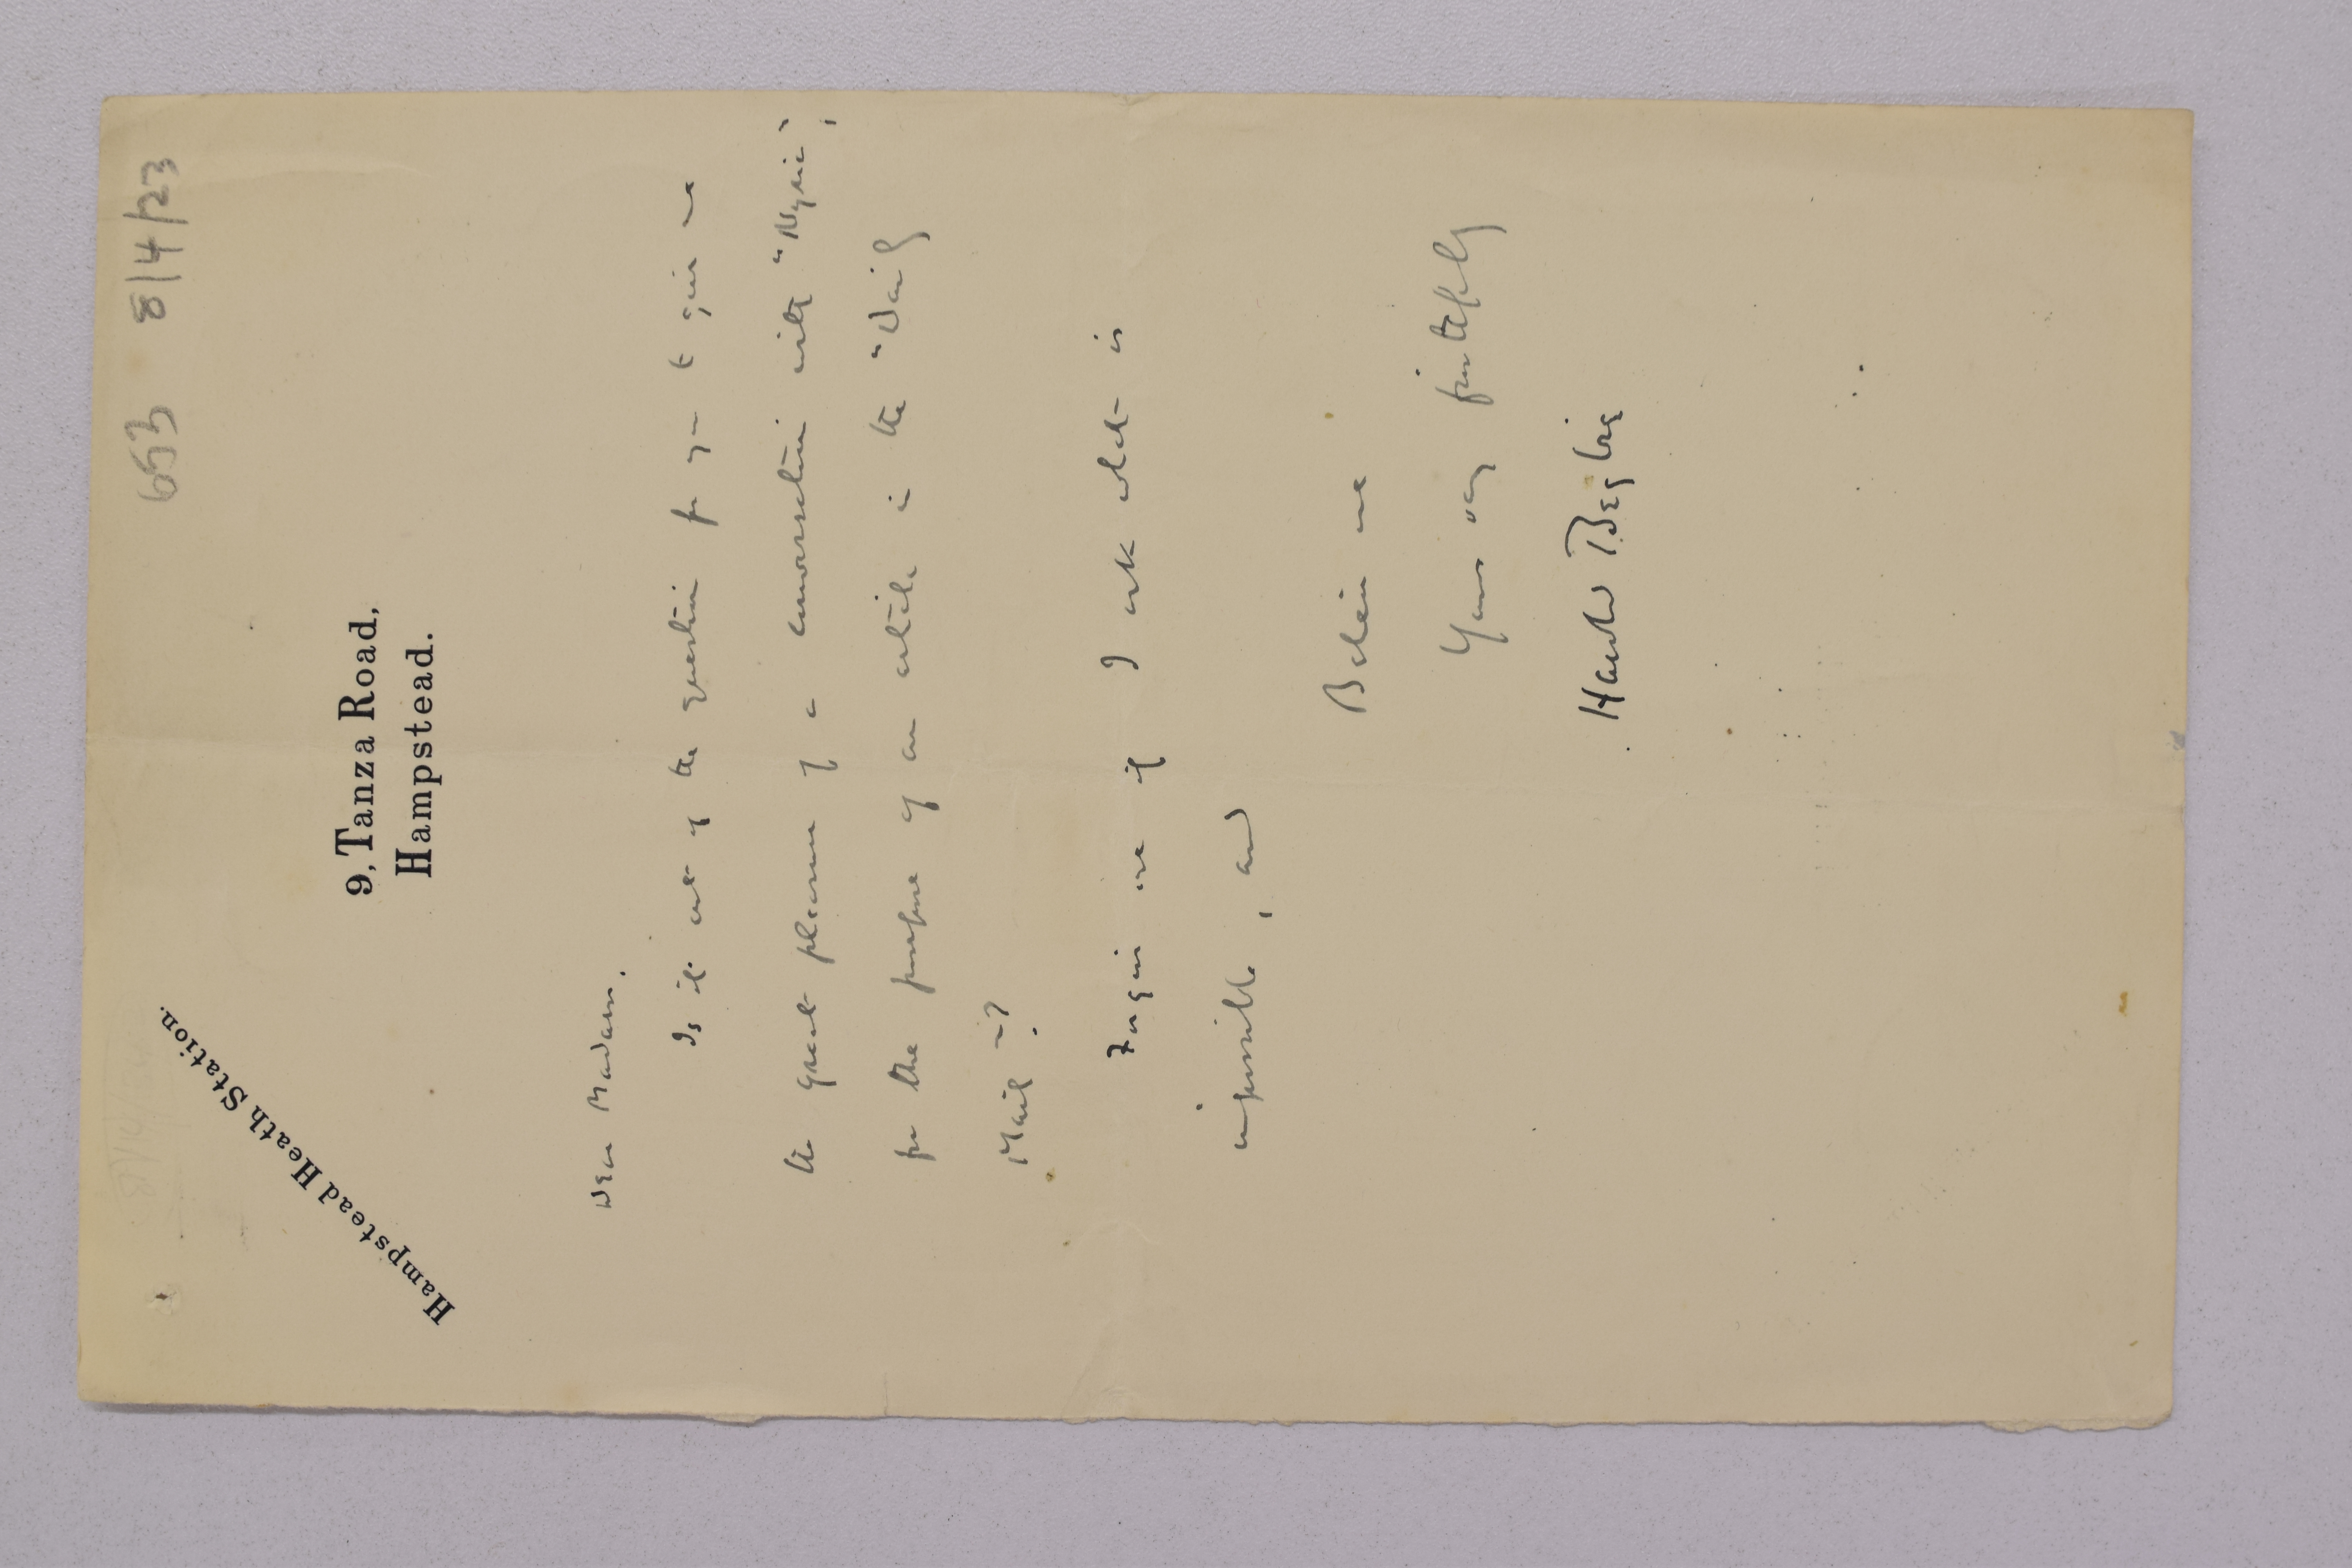 653 8/4/23
Hampstead Heath Station.
9, Tanza Road,
Hampstead.
Dear Madam.
Is it out of the question for you to give me
the great pleasure of a conversation with
for the purpose of an article in the "Daily
Mail"?
Forgive me if I ask what is
impossible, and
Believe me
Yours very faithfully
Harold Begbie